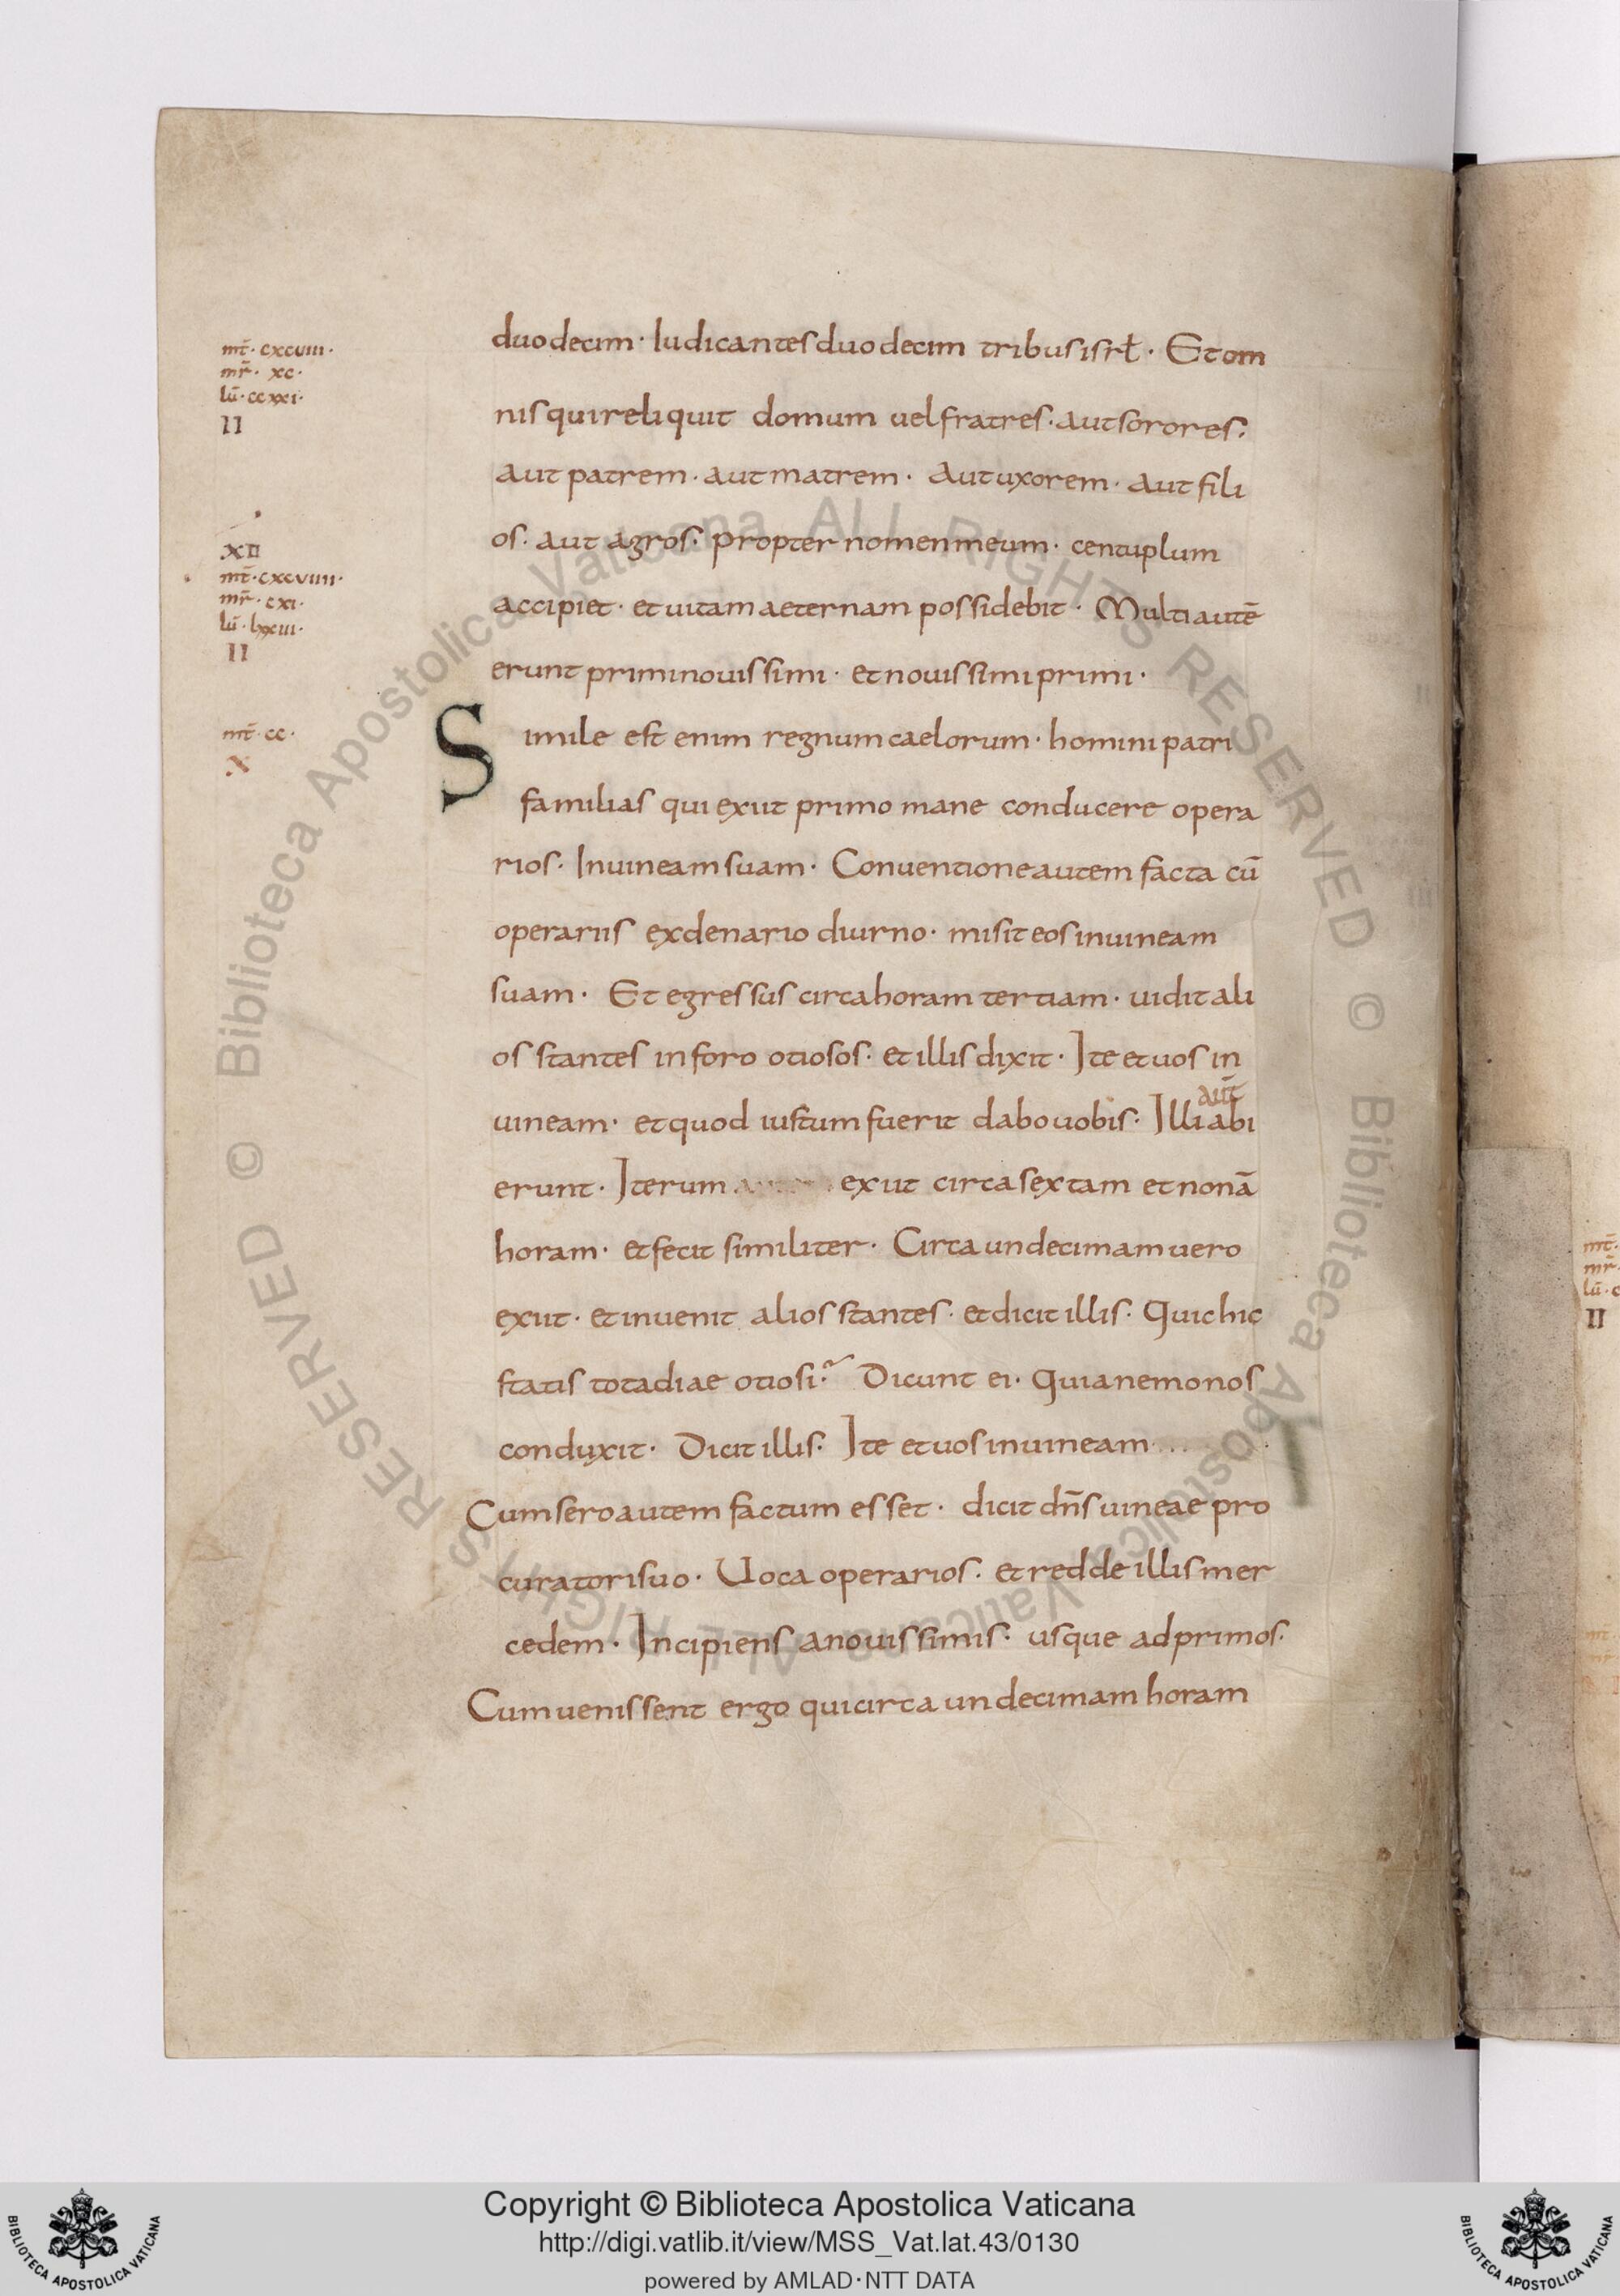 mt̄· cxcviii·
mr̄· xc·
lū· ccxxi·
II
XII
mt̄· cxcviiii·
mr̄· cxi·
lū· lxxiii·
II
mt̄· cc·
X
duodecim· Iudicantes duodecim tribus isrł· Et om
nis qui reliquit domum uel fratres· aut sorores·
aut patrem· aut matrem· Aut uxorem· aut fili
os· aut agros· propter nomen meum· centuplum
accipiet· et uitam aeternam possidebit· Multi autē
erunt primi nouissimi· et nouissimi primi·
Simile est enim regnum caelorum· homini patri
familias qui exiit primo mane conducere opera
rios· In uineam suam· Conuentione autem facta cū
operariis ex denario diurno· misit eos in uineam
suam· Et egressus circa horam tertiam· uidit ali
os stantes in foro otiosos· et illis dixit· Ite et uos in
aut̄
uineam· et quod iustum fuerit dabo uobis· Illi abi
erunt· Iterum exiit circa sextam et nonā
horam· et fecit similiter· Circa undecimam uero
exiit· et inuenit alios stantes· et dicit illis· Quic hic
statis tota diae otiosi? Dicunt ei· Quia nemo nos
conduxit· Dicit illis· Ite et uos in uineam
Cum sero autem factum esset· dicit dn̄s uineae pro
curatori suo· Uoca operarios· et redde illis mer
cedem· Incipiens a nouissimis· usque ad primos·
Cum uenissent ergo qui circa undecimam horam
mt̄·
mr̄·
lū· c
II
© Biblioteca Apostolica Vaticana ALL RIGHTS RESERVED © Biblioteca Apostolica Vaticana ALL RIGHTS RESERVED
BIBLIOTECA APOSTOLICA VATICANA
Copyright © Biblioteca Apostolica Vaticana
http://digi.vatlib.it/view/MSS_Vat.lat.43/0130
powered by AMLAD·NTT DATA
BIBLIOTECA APOSTOLICA VATICANA